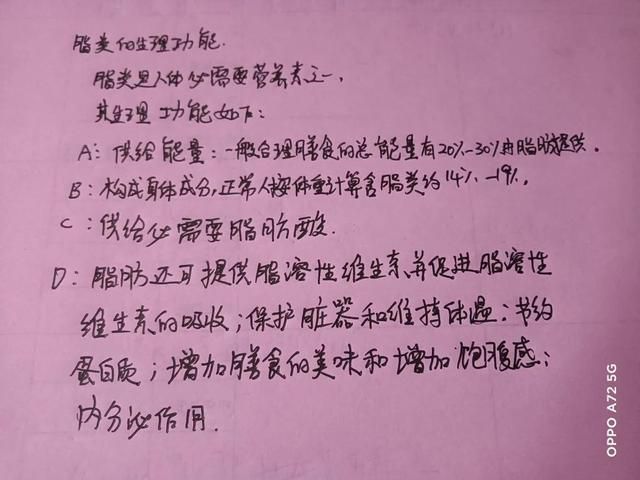 脂类的生理功能.
脂类是人体必需要营养素之一,
其生理功能如下:
A: 供给能量:一般合理膳食的总能量有20%-30%由脂肪提供.
B: 构成身体成分,正常人按体重计算含脂类约14%-19%.
C: 供给必需要脂肪酸.
D: 脂肪还可提供脂溶性维生素并促进脂溶性
维生素的吸收;保护脏器和维持体温;节约
蛋白质;增加膳食的美味和增加饱腹感;
内分泌作用.
OPPO A72 5G